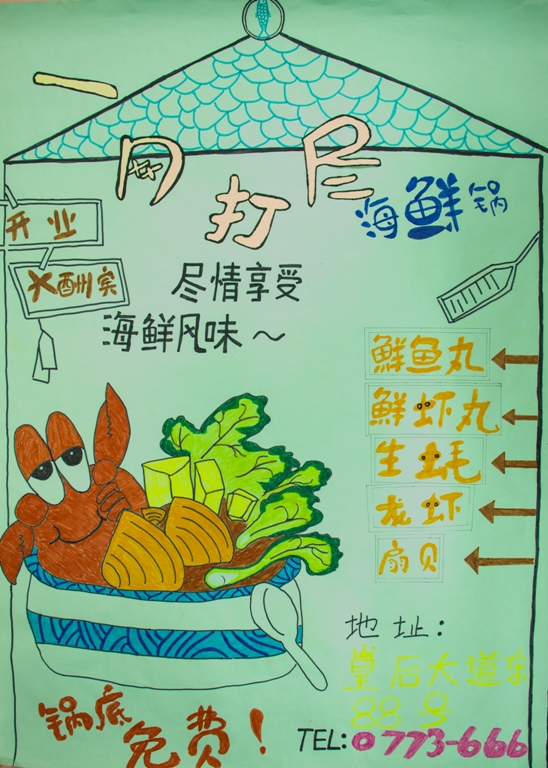 一网打尽
海鲜锅
开业
大酬宾
尽情享受
海鲜风味～
鲜鱼丸
鲜虾丸
生蚝
龙虾
扇贝
地址：
皇后大道东
88号
TEL:0773-666
锅底
免费！